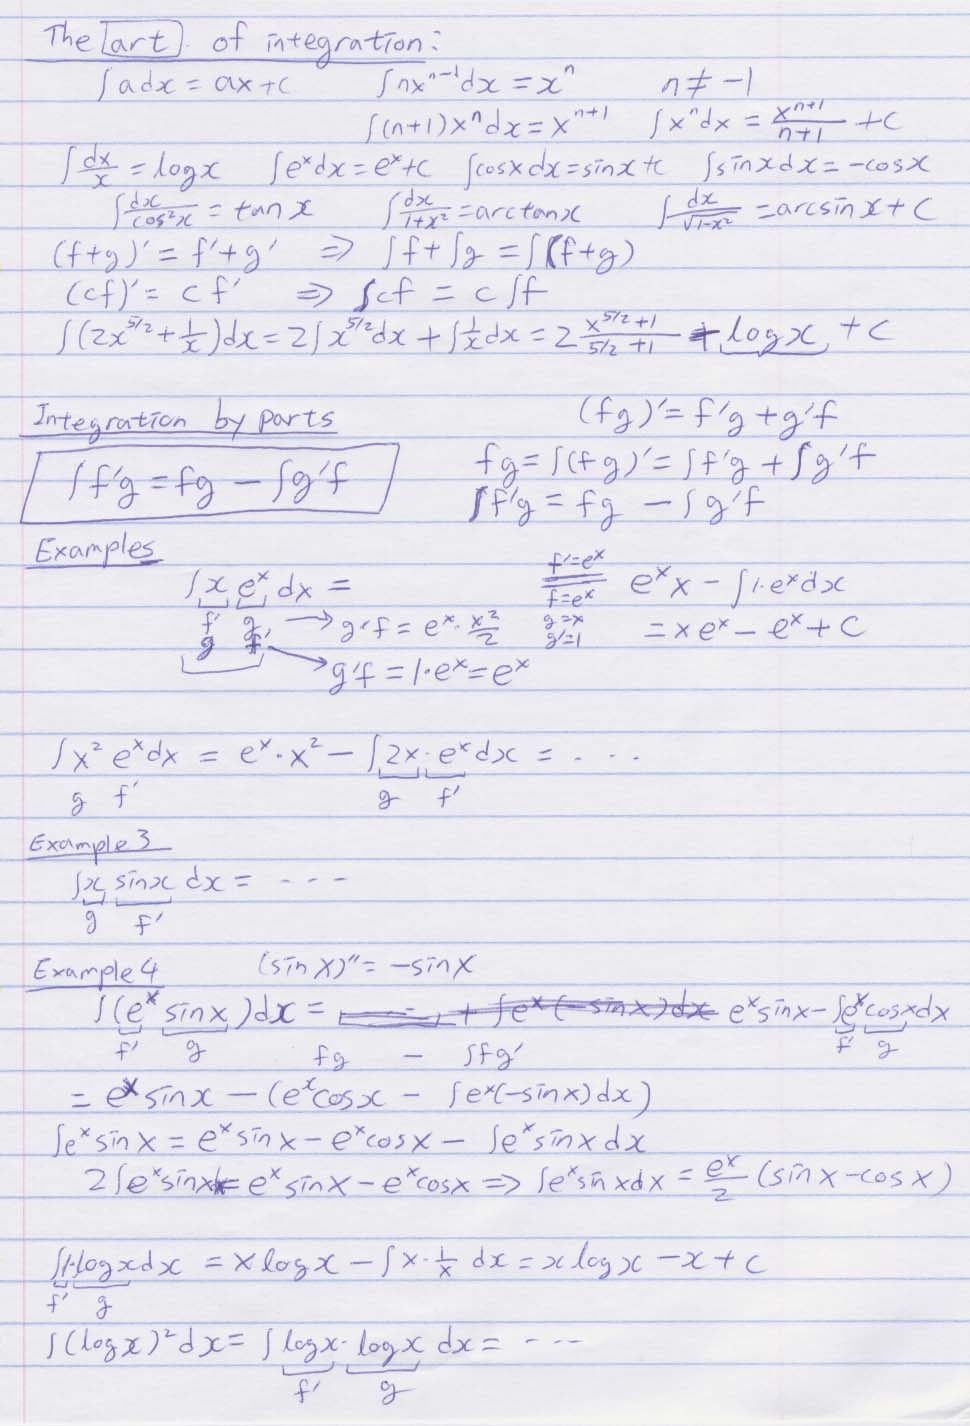 The art of integration:
∫adx = ax+c ∫nxⁿ⁻¹dx = xⁿ n ≠ -1
∫(n+1)xⁿdx = xⁿ⁺¹ ∫xⁿdx = xⁿ⁺¹/n+1 + c
∫dx/x = logx ∫eˣdx = eˣ+c ∫cosxdx = sinx+c ∫sinxdx = -cosx
∫dx/cos²x = tanx ∫dx/1+x² = arctanx ∫dx/√1-x² = arcsinx + c
(f+g)' = f'+g' ⇒ ∫f+∫g = ∫(f+g)
(cf)' = cf' ⇒ ∫cf = c∫f
∫(2x^5/2 + 1/x)dx = 2∫x^5/2 dx + ∫1/x dx = 2 x^5/2+1/5/2+1 + logx + c
Integration by parts (fg)' = f'g + g'f
∫f'g = fg - ∫g'f fg = ∫(fg)' = ∫f'g + ∫g'f
∫f'g = fg - ∫g'f
Examples
∫x eˣ dx = f'=eˣ f=eˣ eˣx - ∫1·eˣdx
f' g → g'f = eˣ·x²/2 g=x g'=1 = xeˣ - eˣ + c
g f' → g'f = 1·eˣ = eˣ
∫x² eˣdx = eˣ·x² - ∫2x·eˣdx = ...
g f' g f'
Example 3
∫x sinx dx = ----
g f'
Example 4 (sinx)'' = -sinx
∫(eˣ sinx)dx = + ∫eˣ(-sinx)dx eˣsinx - ∫eˣcosxdx
f' g fg - ∫fg' f' g
= eˣsinx - (eˣcosx - ∫eˣ(-sinx)dx)
∫eˣsinx = eˣsinx - eˣcosx - ∫eˣsinxdx
2∫eˣsinx = eˣsinx - eˣcosx ⇒ ∫eˣsinxdx = eˣ/2 (sinx-cosx)
∫1·logxdx = xlogx - ∫x·1/x dx = xlogx - x + c
f' g
∫(logx)²dx = ∫logx·logx dx = ----
f' g